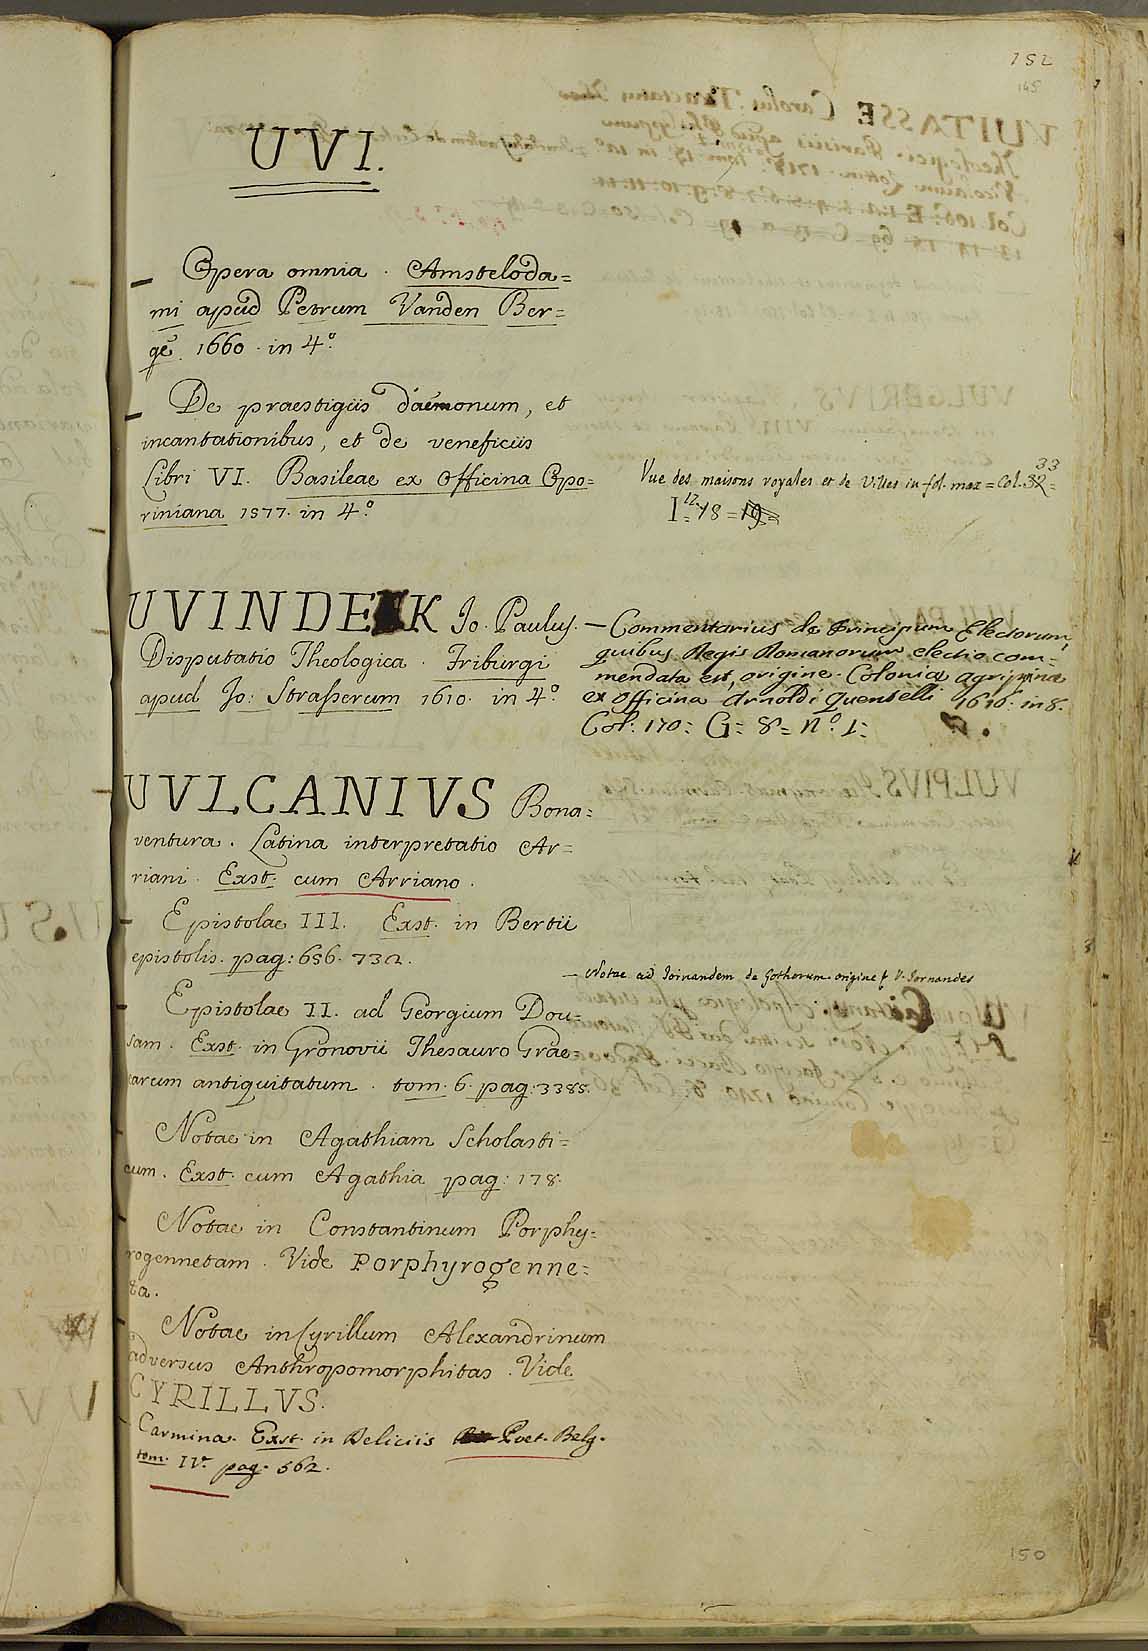 152
145
UVI.
– Opera omnia. Amsteloda=
mi apud Petrum Vanden Ber=
ge. 1660. in 4.o
– De praestigiis daemonum, et
incantationibus, et de veneficiis
Libri VI. Basileae ex Officina Opo=
riniana 1577. in 4.o
Vue des maisons royales et de Villes in fol. max = Col. 32 33 =
I = 12 18 = 19 =
UVINDEK Jo. Paulus.
Disputatio Theologica. Friburgi
apud Jo: Strasserum 1610. in 4.o
– Commentarius de Principum Electorum,
quibus Regis Romanorum electio com=
mendata est, origine. Colonia agripina
ex officina Arnoldi quentelli 1616: in 8.
Col: 170: G= 8= n.o 1:
UVLCANIVS Bona=
ventura. Latina interpretatio Ar=
riani. Exst. cum Arriano.
– Epistolae III. Exst. in Bertii
epistolis. pag: 656. 732.
– Notae ad Joinandem de Gothorum origine V. Jornandes
– Epistolae II. ad Georgium Dou=
sam. Exst. in Gronovii Thesauro Grae=
carum antiquitatum. tom. 6. pag: 3385.
– Notae in Agathiam Scholasti=
cum. Exst. cum Agathia pag: 178.
– Notae in Constantinum Porphy=
rogennetam. Vide Porphyrogenne=
ta.
– Notae in Cyrillum Alexandrinum
adversus Anthropomorphitas. Vide
CYRILLVS.
– Carmina. Exst. in Deliciis Poet. Belg.
tom. IV. pag. 562.
150